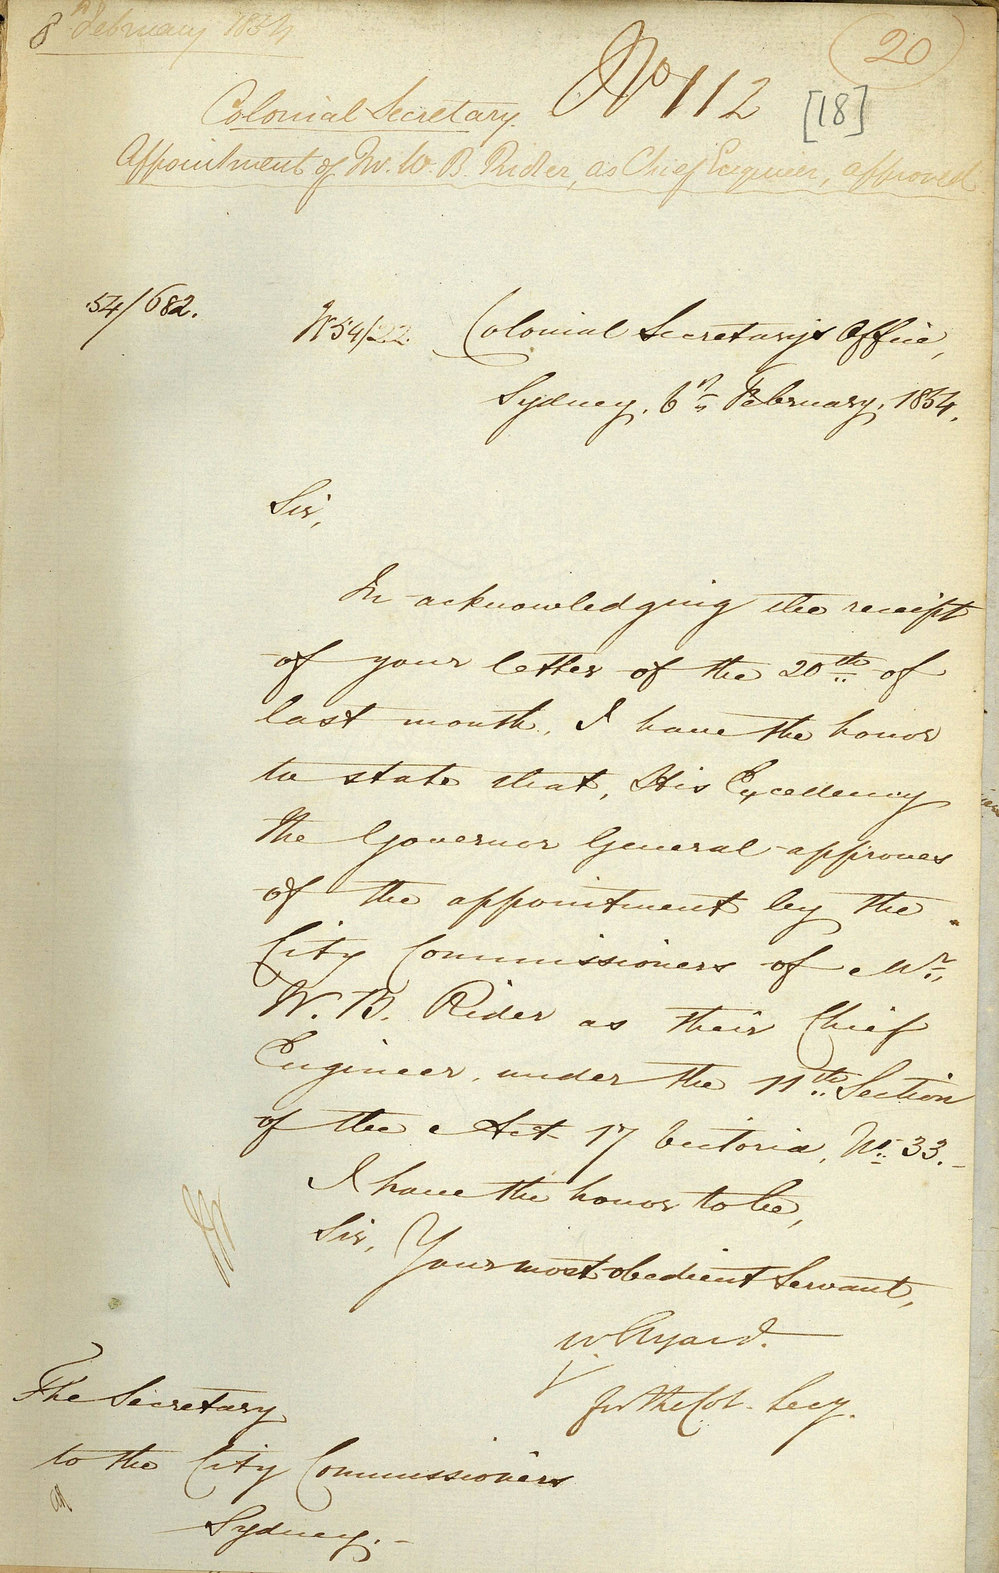 8th February 1854
20
No 112
[18]
Colonial Secretary.
Appointment of Mr. W. B. Rider, as Chief Engineer, approved
54/682.
W54/22
Colonial Secretary's Office,
Sydney, 6th February, 1854.
Sir,
In acknowledging the receipt
of your letter of the 20th of
last month, I have the honor
to state that, His Excellency
the Governor General approves
of the appointment by the
City Commissioners of Mr.
W. B. Rider as their Chief
Engineer, under the 11th Section
of the Act 17 Victoria, No. 33.-
I have the honor to be,
Sir, Your most obedient Servant,
W. Elyard.
for the Col. Secy.
The Secretary
to the City Commissioners
Sydney.-